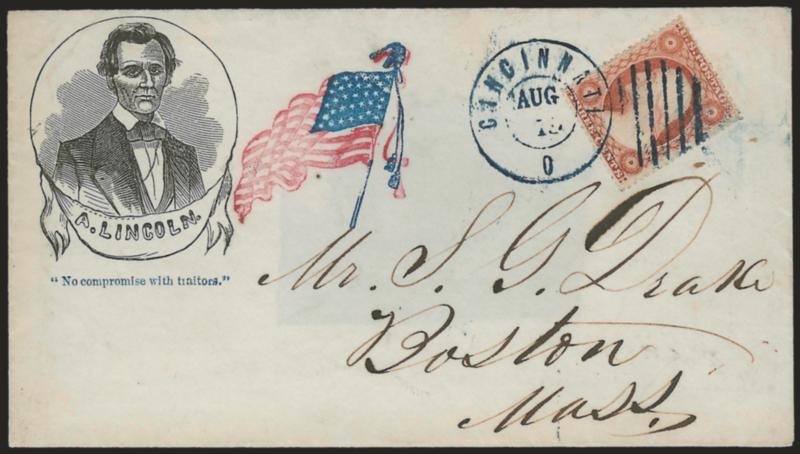 A. LINCOLN.
"No compromise with traitors."
CINCINNATI
AUG
O
Mr. S. G. Drake
Boston
Mass.